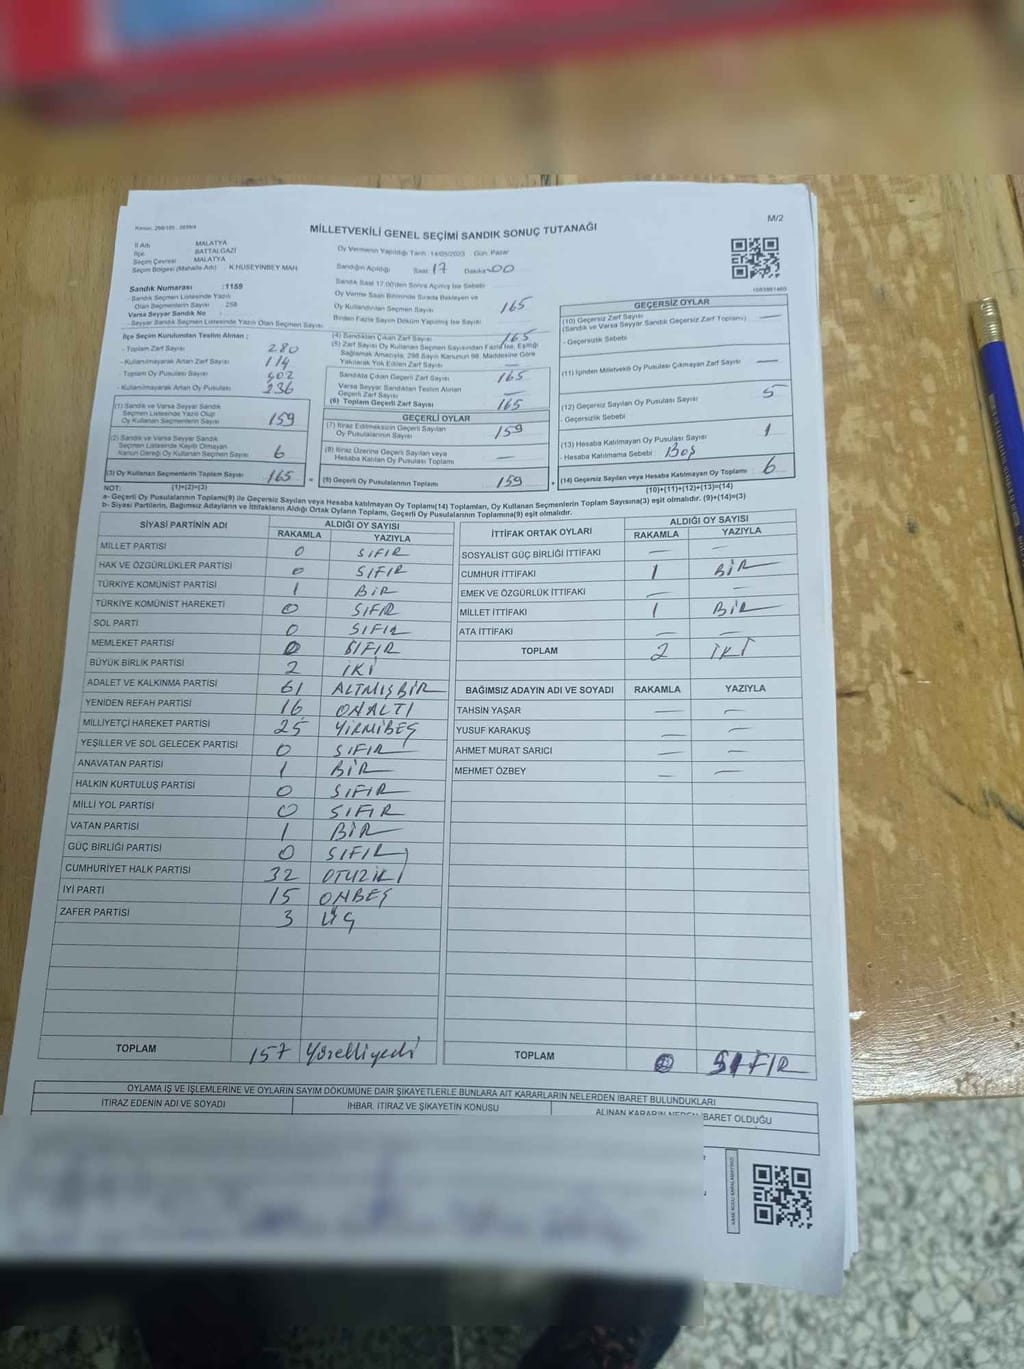 Kanun: 298/105 - 2839/4
M/2
MİLLETVEKİLİ GENEL SEÇİMİ SANDIK SONUÇ TUTANAĞI
İl Adı MALATYA
İlçe BATTALGAZİ
Seçim Çevresi MALATYA
Seçim Bölgesi (Mahalle Adı) : K.HUSEYİNBEY MAH.
Oy Vermenin Yapıldığı Tarih :14/05/2023 Gün: Pazar
Sandığın Açıldığı Saat 17 Dakika 00
Sandık Numarası :1169
- Sandık Seçmen Listesinde Yazılı Olan Seçmenlerin Sayısı : 258
Varsa Seyyar Sandık No :
- Seyyar Sandık Seçmen Listesinde Yazılı Olan Seçmen Sayısı:
Sandık Saat 17.00'den Sonra Açılmış İse Sebebi
Oy Verme Saati Bitiminde Sırada Bekleyen ve
Oy Kullandırılan Seçmen Sayısı 165
Birden Fazla Sayım Döküm Yapılmış İse Sayısı
İlçe Seçim Kurulundan Teslim Alınan ;
- Toplam Zarf Sayısı 280
- Kullanılmayarak Artan Zarf Sayısı 114
- Toplam Oy Pusulası Sayısı 402
- Kullanılmayarak Artan Oy Pusulası 236
(1) Sandık ve Varsa Seyyar Sandık
Seçmen Listesinde Yazılı Olup
Oy Kullanan Seçmenlerin Sayısı 159
(2) Sandık ve Varsa Seyyar Sandık
Seçmen Listesinde Kayıtlı Olmayan
Kanun Gereği Oy Kullanan Seçmen Sayısı 6
(3) Oy Kullanan Seçmenlerin Toplam Sayısı 165
(1)+(2)=(3)
(4) Sandıktan Çıkan Zarf Sayısı 165
(5) Zarf Sayısı Oy Kullanan Seçmen Sayısından Fazla İse, Eşitliği
Sağlamak Amacıyla, 298 Sayılı Kanunun 98. Maddesine Göre
Yakılarak Yok Edilen Zarf Sayısı —
Sandıkta Çıkan Geçerli Zarf Sayısı 165
Varsa Seyyar Sandıktan Teslim Alınan
Geçerli Zarf Sayısı —
(6) Toplam Geçerli Zarf Sayısı 165
GEÇERLİ OYLAR
(7) İtiraz Edilmeksizin Geçerli Sayılan
Oy Pusulalarının Sayısı 159
(8) İtiraz Üzerine Geçerli Sayılan veya
Hesaba Katılan Oy Pusulası Toplamı —
(9) Geçerli Oy Pusulalarının Toplamı 159
GEÇERSİZ OYLAR
(10) Geçersiz Zarf Sayısı
(Sandık ve Varsa Seyyar Sandık Geçersiz Zarf Toplamı) —
- Geçersizlik Sebebi
(11) İçinden Milletvekili Oy Pusulası Çıkmayan Zarf Sayısı —
(12) Geçersiz Sayılan Oy Pusulası Sayısı 5
- Geçersizlik Sebebi
(13) Hesaba Katılmayan Oy Pusulası Sayısı 1
- Hesaba Katılmama Sebebi : BOŞ
(14) Geçersiz Sayılan veya Hesaba Katılmayan Oy Toplamı 6
(10)+(11)+(12)+(13)=(14)
NOT:
a- Geçerli Oy Pusulalarının Toplamı(9) ile Geçersiz Sayılan veya Hesaba Katılmayan Oy Toplamı(14) Toplamları, Oy Kullanan Seçmenlerin Toplam Sayısına(3) eşit olmalıdır. (9)+(14)=(3)
b- Siyasi Partilerin, Bağımsız Adayların ve İttifakların Aldığı Ortak Oyların Toplamı, Geçerli Oy Pusulalarının Toplamına(9) eşit olmalıdır.
SİYASİ PARTİNİN ADI ALDIĞI OY SAYISI
RAKAMLA YAZIYLA
MİLLET PARTİSİ 0 SIFIR
HAK VE ÖZGÜRLÜKLER PARTİSİ 0 SIFIR
TÜRKİYE KOMÜNİST PARTİSİ 1 BİR
TÜRKİYE KOMÜNİST HAREKETİ 0 SIFIR
SOL PARTİ 0 SIFIR
MEMLEKET PARTİSİ 0 SIFIR
BÜYÜK BİRLİK PARTİSİ 2 İKİ
ADALET VE KALKINMA PARTİSİ 61 ALTMIŞBİR
YENİDEN REFAH PARTİSİ 16 ONALTI
MİLLİYETÇİ HAREKET PARTİSİ 25 YİRMİBEŞ
YEŞİLLER VE SOL GELECEK PARTİSİ 0 SIFIR
ANAVATAN PARTİSİ 1 BİR
HALKIN KURTULUŞ PARTİSİ 0 SIFIR
MİLLİ YOL PARTİSİ 0 SIFIR
VATAN PARTİSİ 1 BİR
GÜÇ BİRLİĞİ PARTİSİ 0 SIFIR
CUMHURİYET HALK PARTİSİ 32 OTUZİKİ
İYİ PARTİ 15 ONBEŞ
ZAFER PARTİSİ 3 ÜÇ
TOPLAM 157 Yüzelliyedi
İTTİFAK ORTAK OYLARI ALDIĞI OY SAYISI
RAKAMLA YAZIYLA
SOSYALİST GÜÇ BİRLİĞİ İTTİFAKI — —
CUMHUR İTTİFAKI 1 BİR
EMEK VE ÖZGÜRLÜK İTTİFAKI — —
MİLLET İTTİFAKI 1 BİR
ATA İTTİFAKI — —
TOPLAM 2 İKİ
BAĞIMSIZ ADAYIN ADI VE SOYADI RAKAMLA YAZIYLA
TAHSİN YAŞAR — —
YUSUF KARAKUŞ — —
AHMET MURAT SARICI — —
MEHMET ÖZBEY — —
TOPLAM 0 SIFIR
OYLAMA İŞ VE İŞLEMLERİNE VE OYLARIN SAYIM DÖKÜMÜNE DAİR ŞİKAYETLERLE BUNLARA AİT KARARLARIN NELERDEN İBARET BULUNDUKLARI
İTİRAZ EDENİN ADI VE SOYADI İHBAR, İTİRAZ VE ŞİKAYETİN KONUSU ALINAN KARARIN NEDEN İBARET OLDUĞU